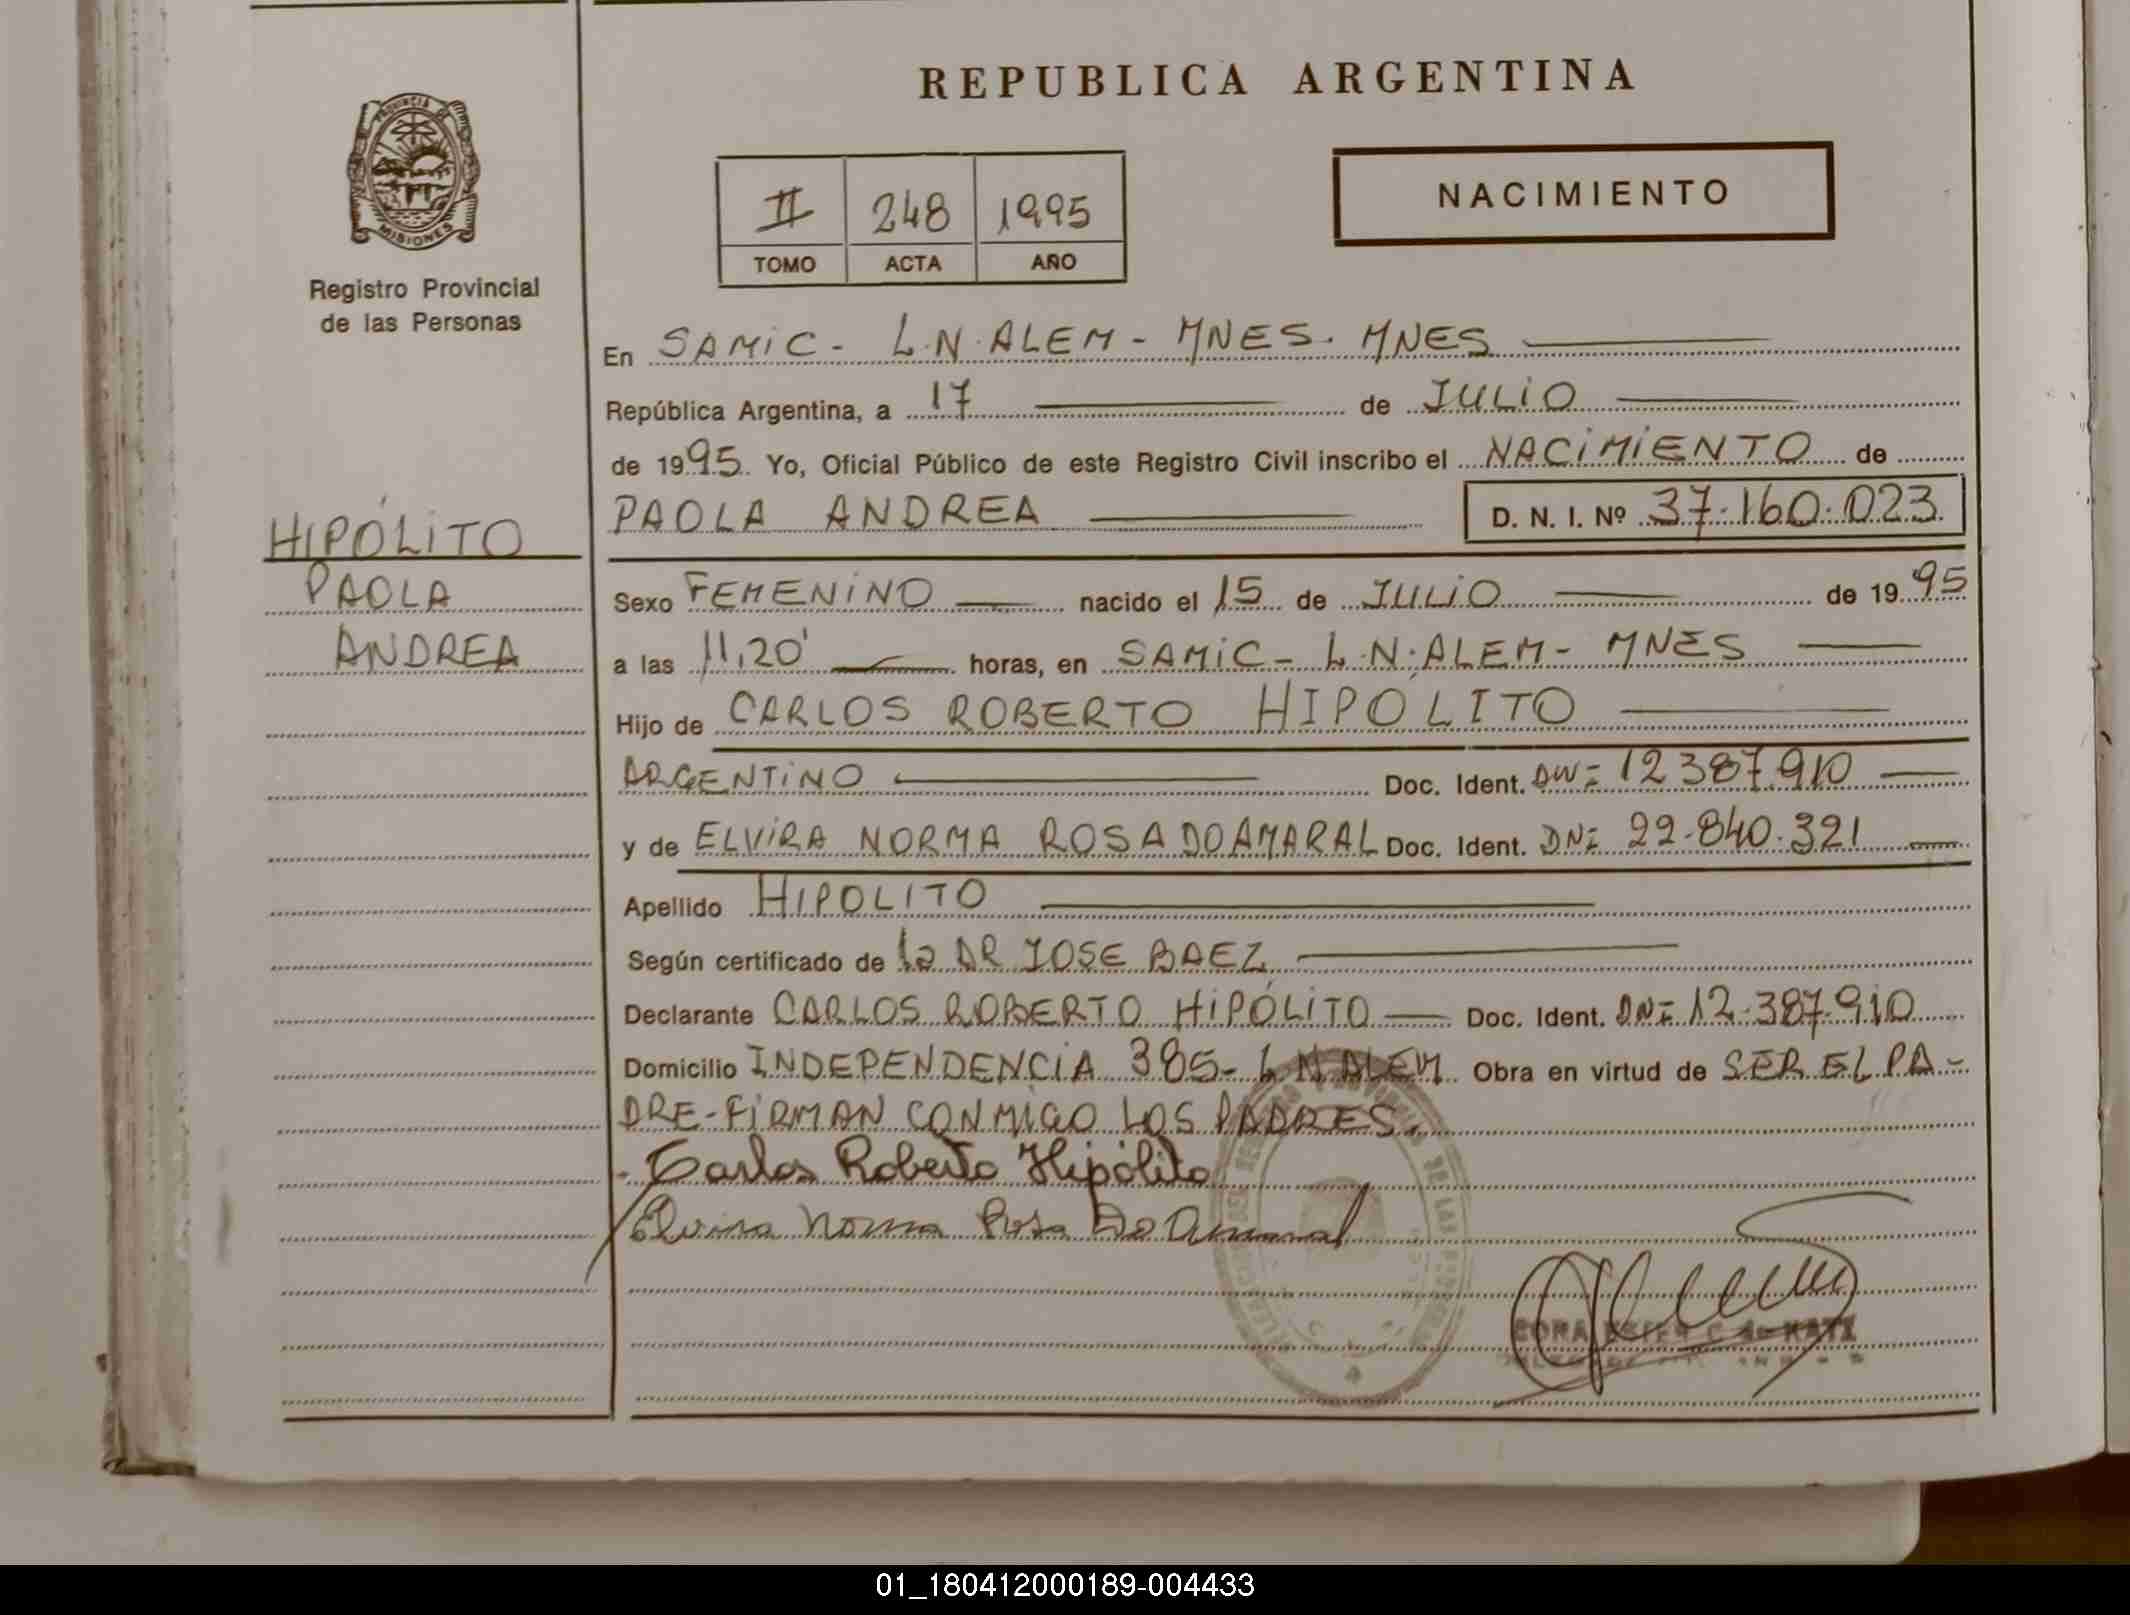 REPUBLICA ARGENTINA
PROVINCIA DE
MISIONES
Registro Provincial
de las Personas
II 248 1995
TOMO ACTA AÑO
NACIMIENTO
En SAMIC - L.N. ALEM - MNES. MNES
República Argentina, a 17 de JULIO
de 1995. Yo, Oficial Público de este Registro Civil inscribo el NACIMIENTO de
PAOLA ANDREA D. N. I. Nº 37.160.023
HIPÓLITO
PAOLA
ANDREA
Sexo FEMENINO nacido el 15 de JULIO de 1995
a las 11,20' horas, en SAMIC - L.N. ALEM - MNES
Hijo de CARLOS ROBERTO HIPÓLITO
ARGENTINO Doc. Ident. DNI 12387.910
y de ELVIRA NORMA ROSA DO AMARAL Doc. Ident. DNI 22.840.321
Apellido HIPOLITO
Según certificado de la DR JOSE BAEZ
Declarante CARLOS ROBERTO HIPÓLITO Doc. Ident. DNI 12.387.910
Domicilio INDEPENDENCIA 385 - L N ALEM Obra en virtud de SER EL PA-
DRE - FIRMAN CONMIGO LOS PADRES.
Carlos Roberto Hipólito
Elvira Norma Rosa Do Amaral
KATZ
01_180412000189-004433